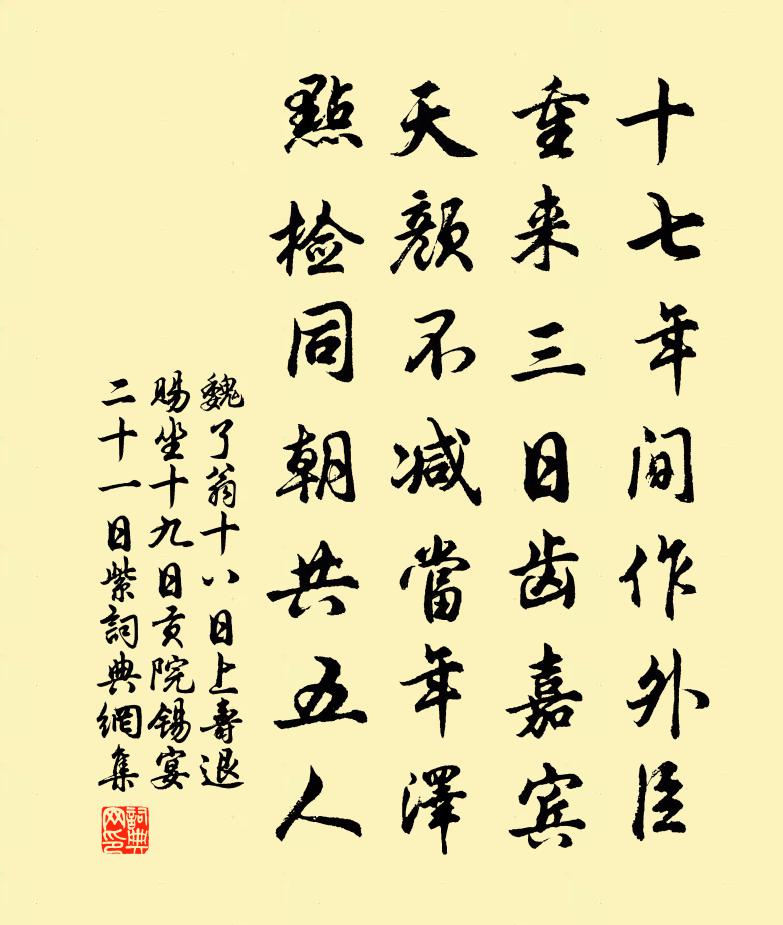 十七年间作外臣
重来三日齿嘉宾
天颜不减當年澤
點检同朝共五人
魏了翁十八日上壽退
賜坐十九日贡院锡宴
二十一日紫詞典網集
詞典网印